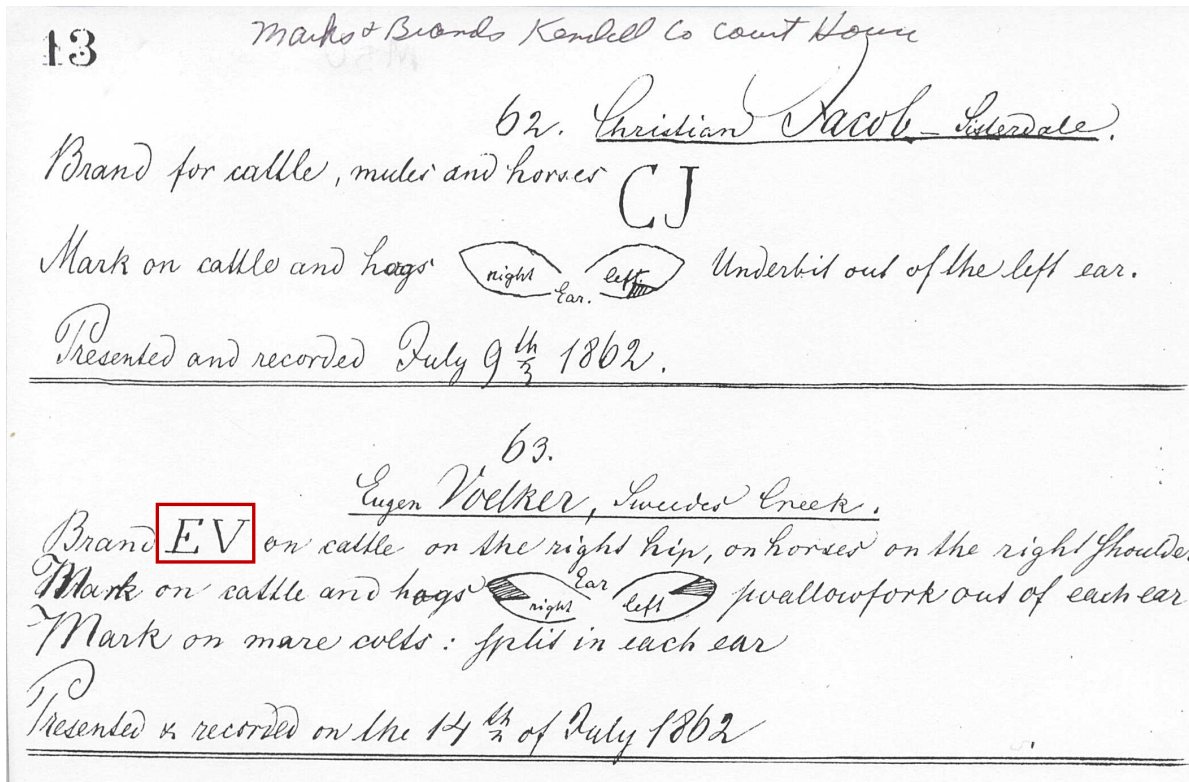 13
Marks & Brands Kendell Co Court House
62. Christian Jacob – Sisterdale.
Brand for cattle, mules and horses CJ
Mark on cattle and hogs right Ear. left Underbit out of the left ear.
Presented and recorded July 9th 1862.
63.
Eugen Voelker, Sweedes Creek.
Brand EV on cattle on the right hip, on horses on the right shoulde
Mark on cattle and hogs right Ear left swallowfork out of each ear
Mark on mare colts: split in each ear
Presented & recorded on the 14th of July 1862